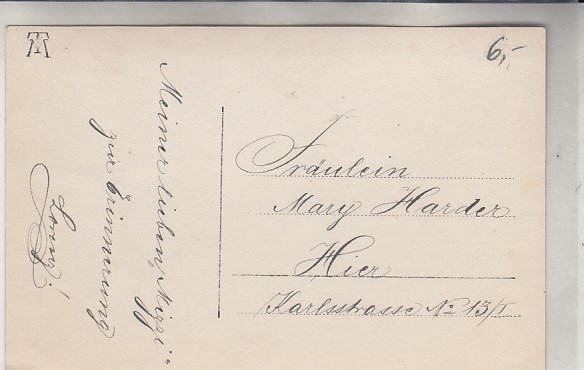 6,-
Meiner lieben „Mizzi“
zur Erinnerung
Fräulein
Mary Harder
Hier
Karlsstrasse No 13/I